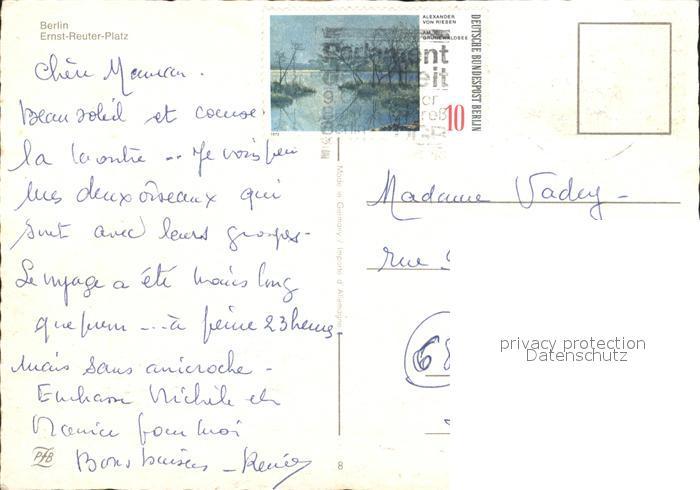 Berlin
Ernst-Reuter-Platz
ALEXANDER
VON RIESEN
AM
GRUNEWALDSEE
DEUTSCHE BUNDESPOST BERLIN
10
Chère Maman.
Beau soleil et
la ... Je vois peu
mes deux oiseaux qui
sont avec leurs groupes -
Le voyage a été moins long
que prévu ... à peine 23 heures
mais sans anicroche -
Embrasse Michèle et
pour moi
Bons baisers - Renée
Made in Germany / Importé d'Allemagne
PhB
8
Madame Vadey -
rue
68
privacy protection
Datenschutz